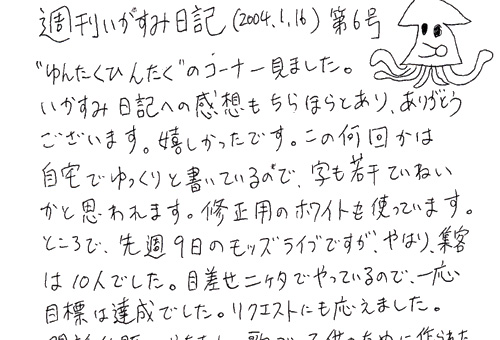 週刊いがすみ日記(2004.1.16)第6号
"ゆんたくひんたく"のコーナー見ました。
いかすみ日記への感想もちらほらとあり、ありがとう
ございます。嬉しかったです。この何回かは
自宅でゆっくりと書いているので、字も若干ていねい
かと思われます。修正用のホワイトも使っています。
ところで、先週9日のモッズライブですが、やはり、集客
は10人でした。目差せ二ケタでやっているので、一応
目標は達成でした。リクエストにも応えました。